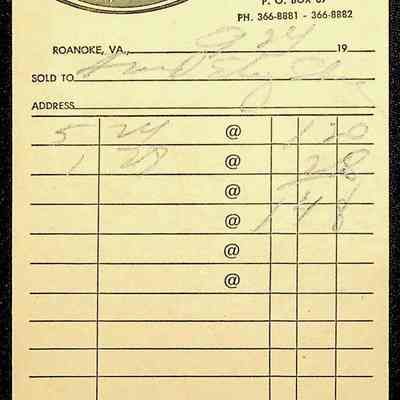 P. O. BOX 67
PH. 366-8881 - 366-8882
ROANOKE, VA., 9 24 19
SOLD TO
ADDRESS
5 24 @ 1 20
1 28 @ 28
@ 1 48
@
@
@